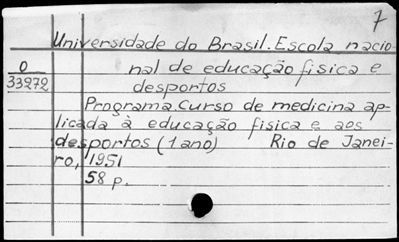 7
Universidade do Brasil. Escola nacio-
0 nal de educação fisica e
33272 desportos
Programa Curso de medicina ap-
licada à educação fisica e aos
desportos (1 ano) Rio de Janei-
ro, 1951
58 p.